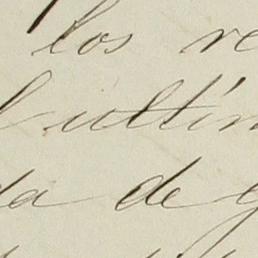 los re
l últim
da de g